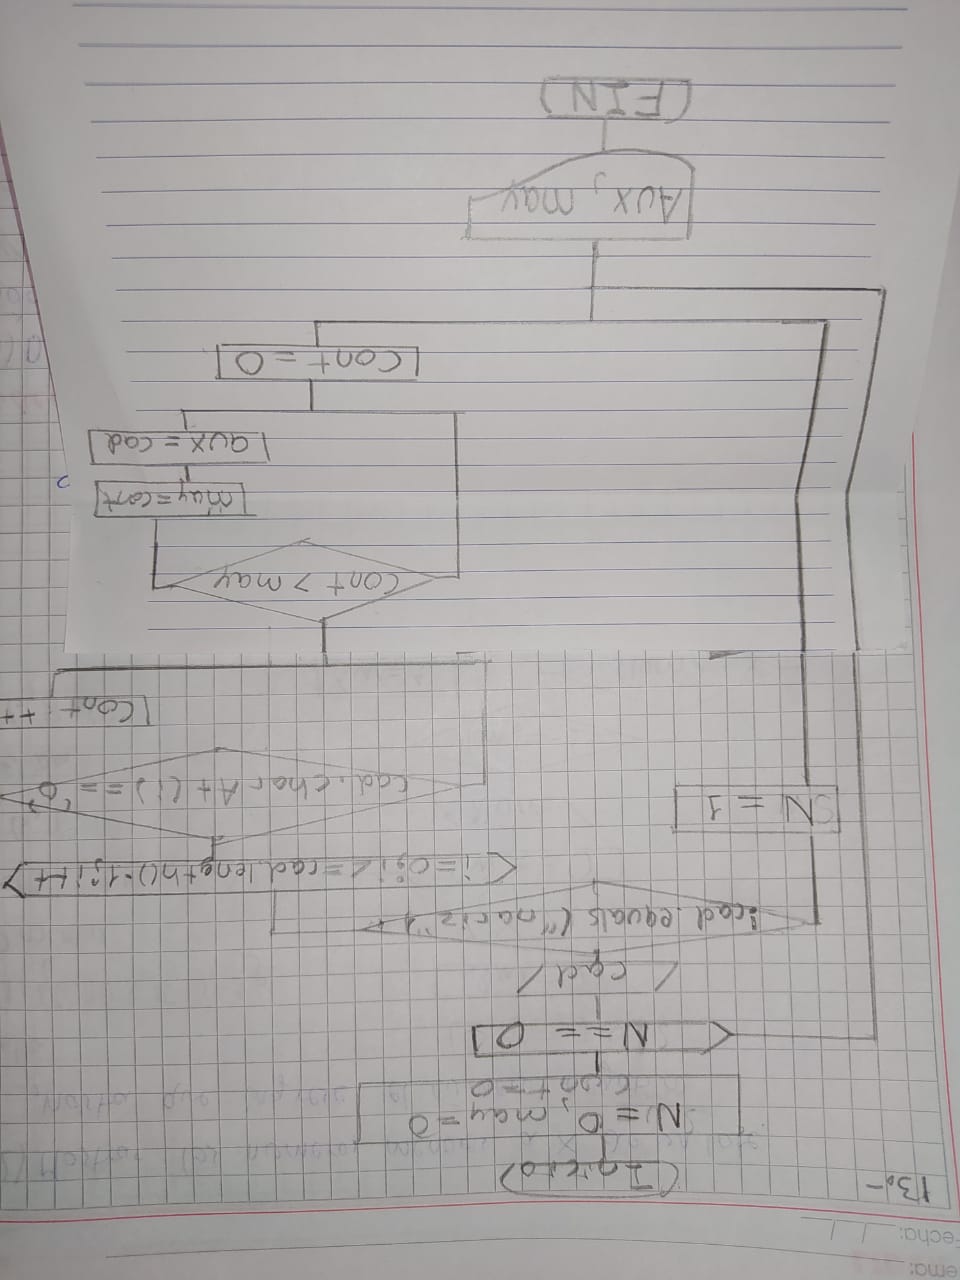 ema:
echa: / /
13.-
(Inicio)
N=0, may=0
cont=0
N == 0
cad
!cad.equals("nariz")
i=0; i<=cad.length()-1; i++
N = 1
cad.charAt(i) == 'o'
Cont ++
Cont > may
may=cont
aux = cad
Cont = 0
Aux, may
(FIN)